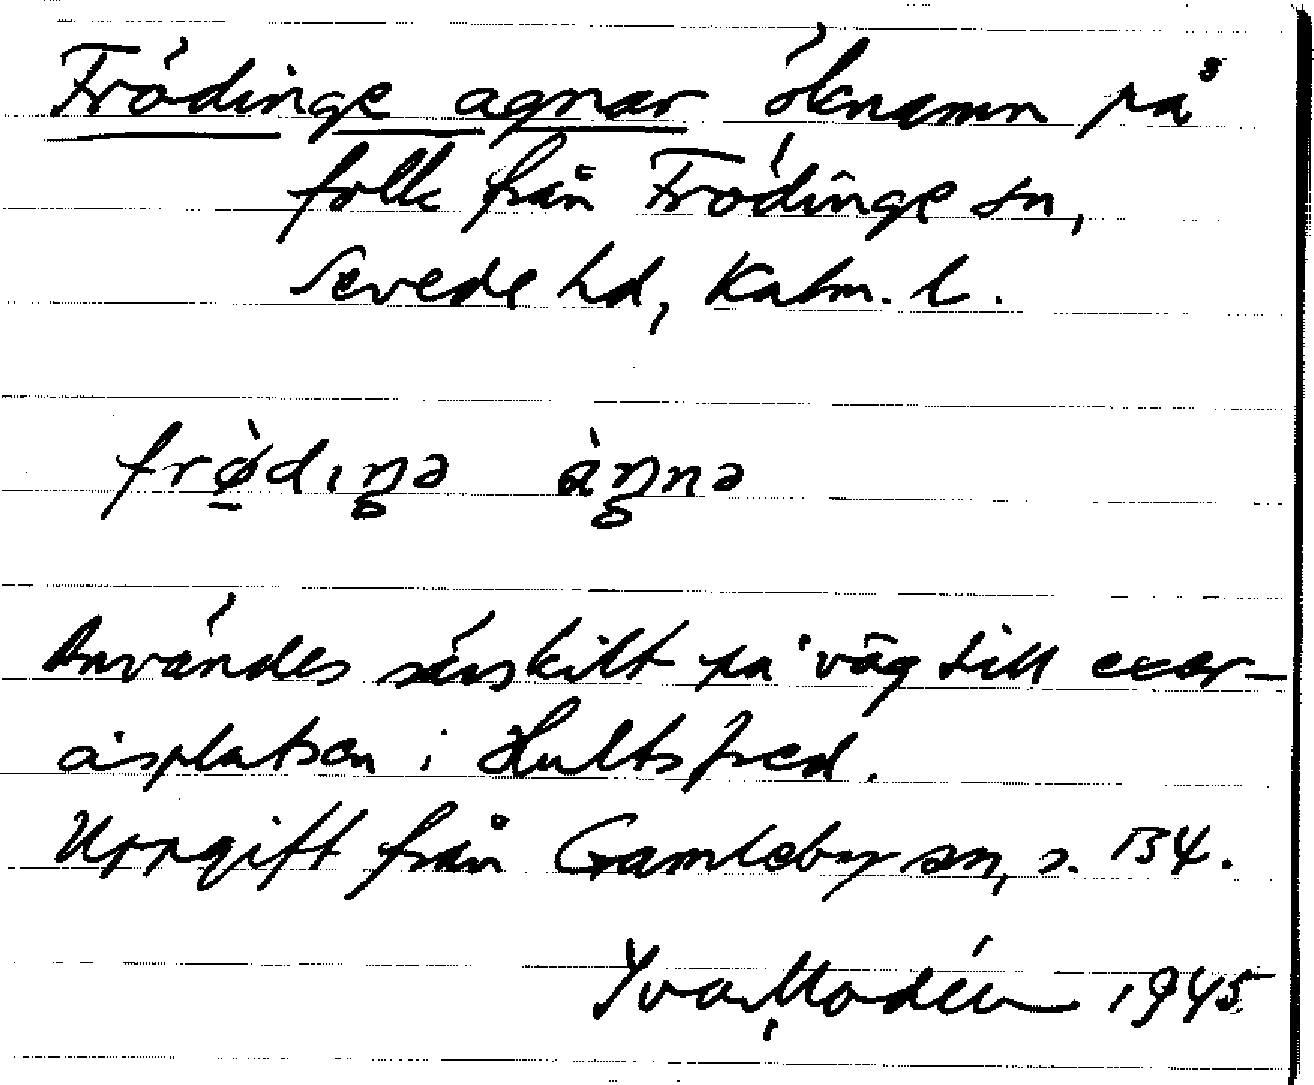 Frödinge agnar öknamn på
folk från Frödinge sn,
Sevede hd, Kalm. l.
frø̀dıŋə àŋnə
Användes särskilt på väg till exer-
cisplatsen i Hultsfred.
Uppgift från Gamleby sn, s. 134.
Yvar Modéer 1945